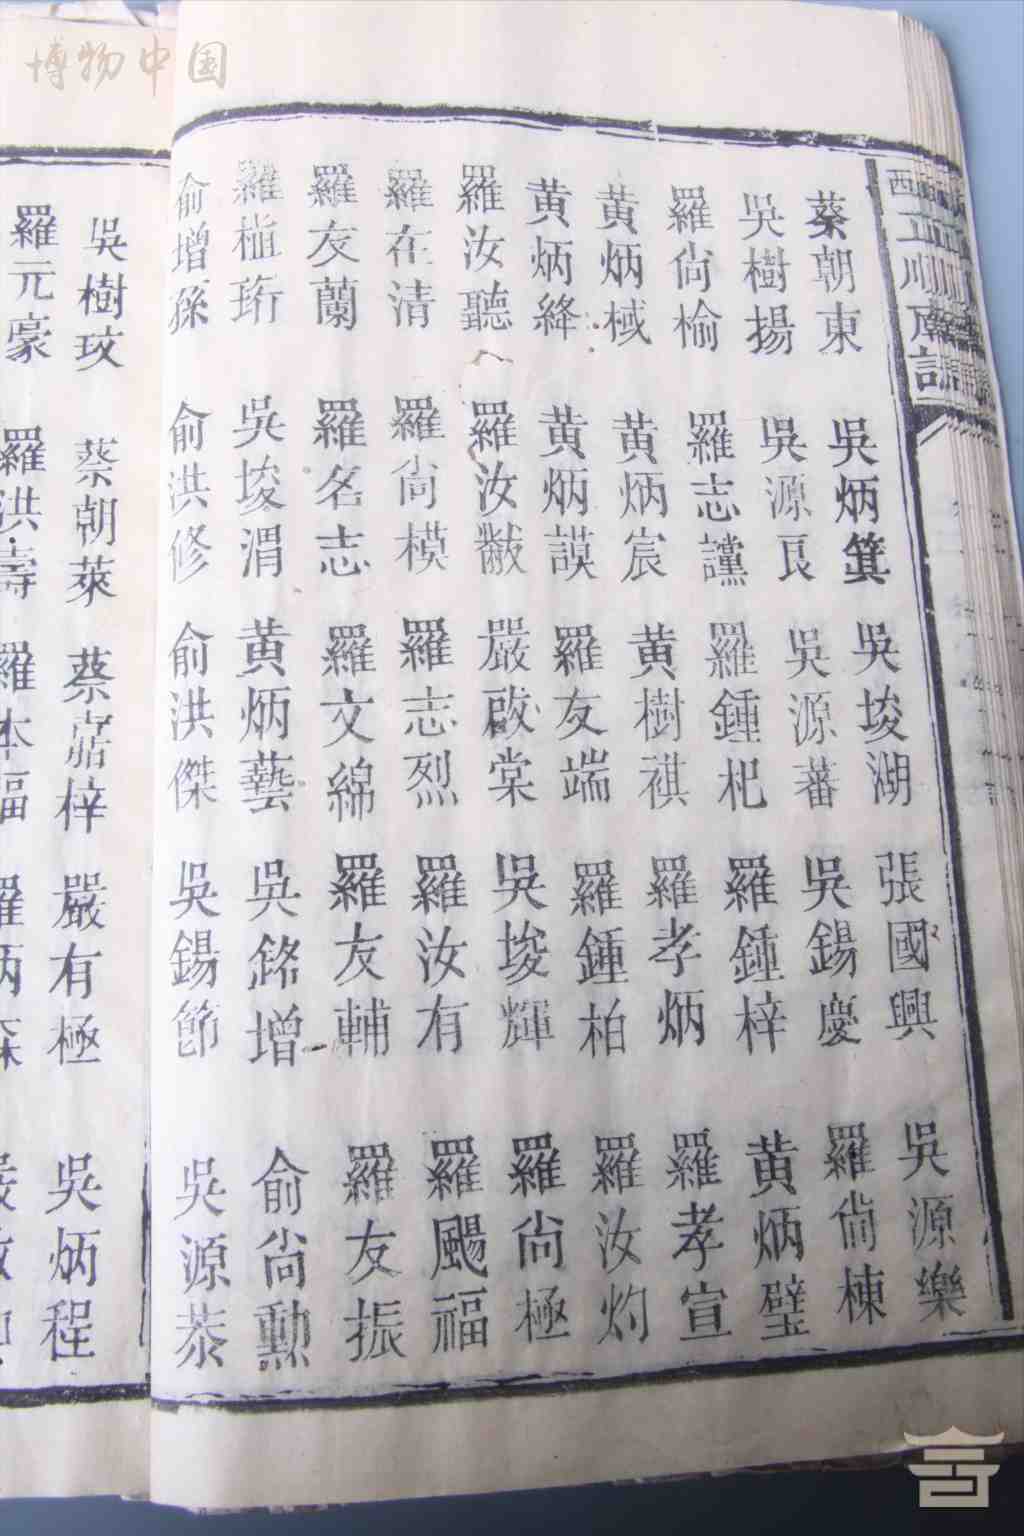 博物中国
蔡朝東 吳炳箕 吳埈湖 張國興 吳源樂
吳樹揚 吳源良 吳源蕃 吳錫慶 羅尙棟
羅尙榆 羅志讜 羅鍾杞 羅鍾梓 黄炳璧
黄炳棫 黄炳宸 黄樹祺 羅孝炳 羅孝宣
黄炳絳 黄炳謨 羅友端 羅鍾柏 羅汝灼
羅汝聽 羅汝黻 嚴啟棠 吳埈輝 羅尙極
羅在清 羅尙模 羅志烈 羅汝有 羅颺福
羅友蘭 羅名志 羅文綿 羅友輔 羅友振
羅植珩 吳埈渭 黄炳藝 吳銘增 俞尙勳
俞增蓀 俞洪修 俞洪傑 吳錫節 吳源恭
吳樹玟 蔡朝萊 蔡嵩梓 嚴有極 吳炳程
羅元豪 羅洪壽 羅本福 羅炳森